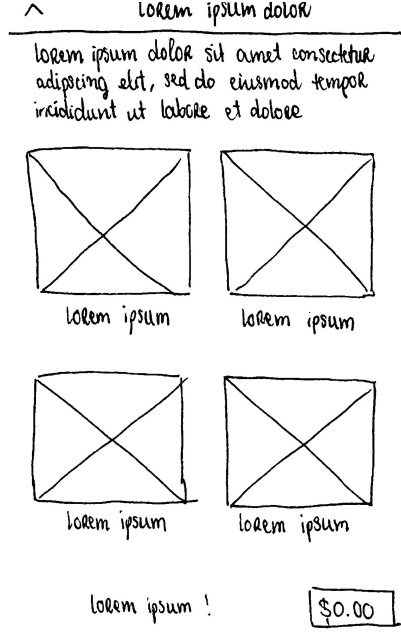 lorem ipsum dolor
lorem ipsum dolor sit amet consectetur
adipscing elit, sed do eiusmod tempor
incididunt ut labore et dolore
lorem ipsum
lorem ipsum
lorem ipsum
lorem ipsum
lorem ipsum !
$0.00